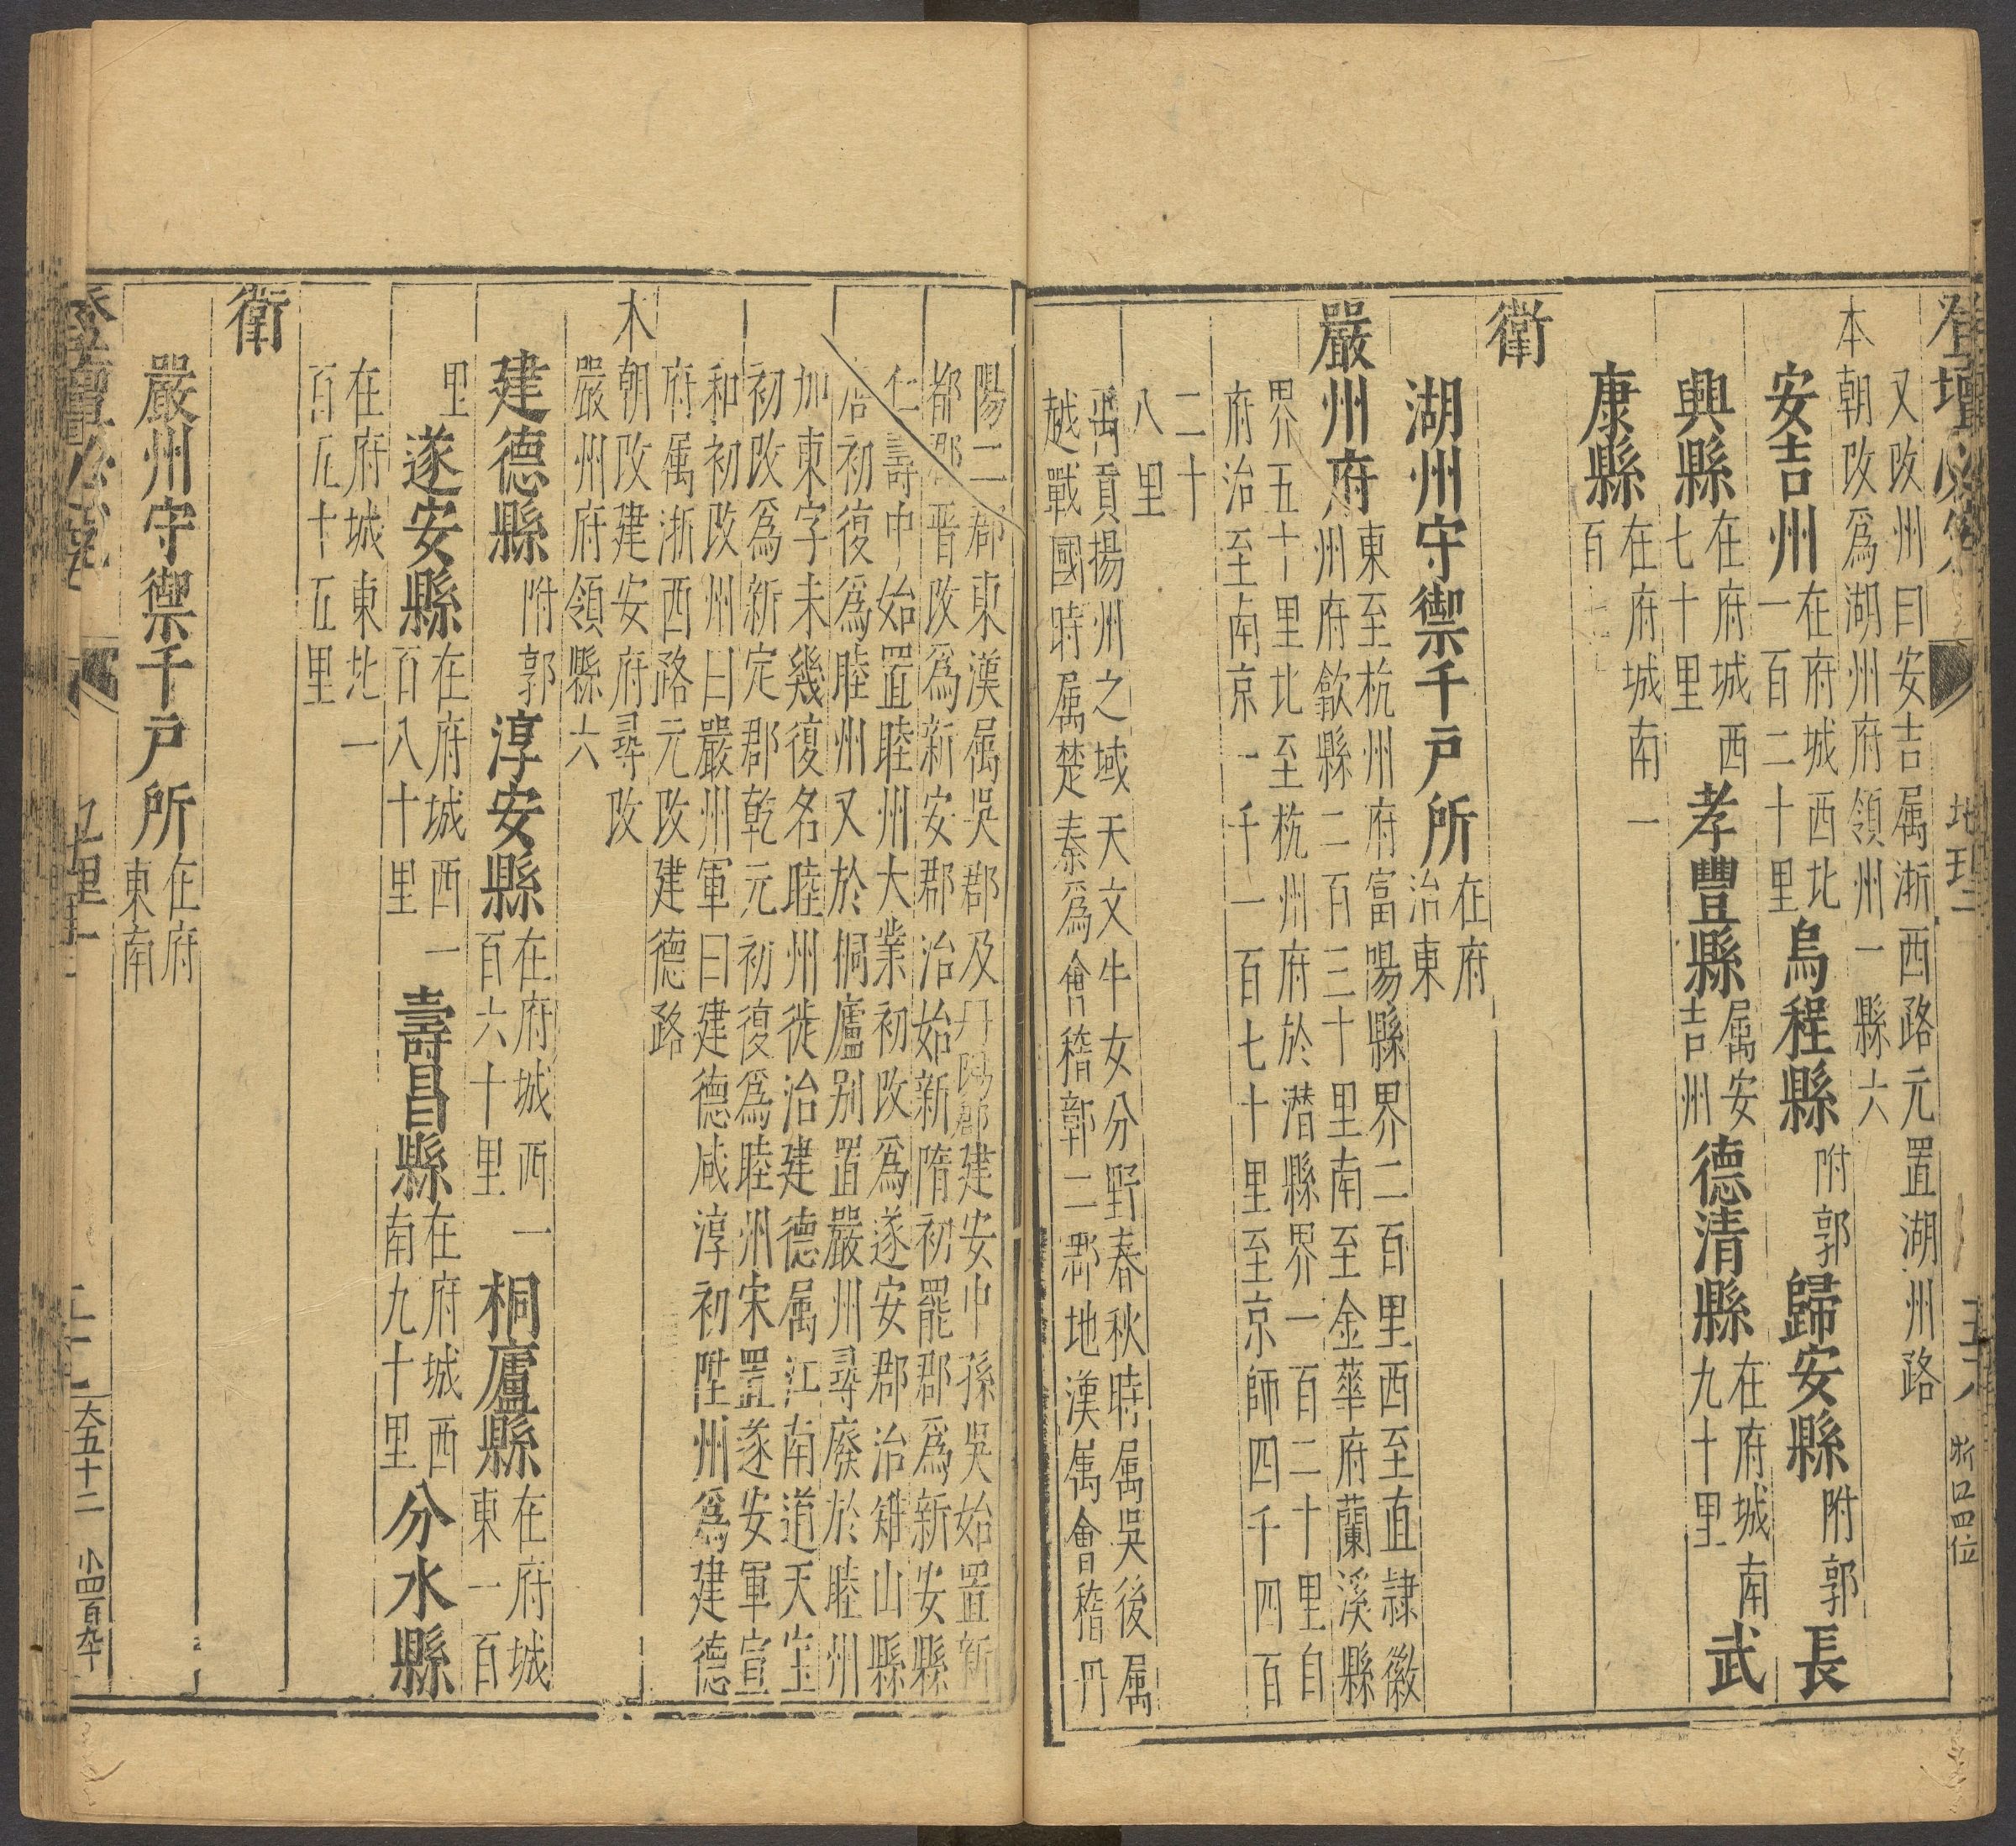 登壇必究
地理二
浙口四位
又改州曰安吉属浙西路元置湖州路
本朝改爲湖州府領州一縣六
安吉州在府城西北一百二十里烏程縣附郭歸安縣附郭長
興縣在府城西七十里孝豐縣属安吉州德清縣在府城南九十里武
康縣在府城南一百
衛
湖州守禦千戶所在府治東
嚴州府東至杭州府富陽縣界二百里西至直隸徽
州府歙縣二百三十里南至金華府蘭溪縣
界五十里北至杭州府於潛縣界一百二十里自
府治至南京一千一百七十里至京師四千四百
二十
八里
禹貢揚州之域天文牛女分野春秋時属吳後属
越戰國時属楚秦爲會稽鄣二郡地漢属會稽丹
陽二郡東漢属吳郡及丹陽郡建安中孫吳始置新
都郡晋改爲新安郡治始新隋初罷郡爲新安縣
仁壽中始置睦州大業初改爲遂安郡治雉山縣
唐初復爲睦州又於桐廬别置嚴州尋廢於睦州
加東字未幾復名睦州徙治建德属江南道天宝
初改爲新定郡乾元初復爲睦州宋置遂安軍宣
和初改州曰嚴州軍曰建德咸淳初陞州爲建德
府属浙西路元改建德路
木朝改建安府尋改
嚴州府領縣六
建德縣附郭淳安縣在府城西一百六十里桐廬縣在府城東一百
里遂安縣在府城西一百八十里壽昌縣在府城西南九十里分水縣
在府城東北一
百五十五里
衛
嚴州守禦千戶所在府東南
大五十二
小四百九十